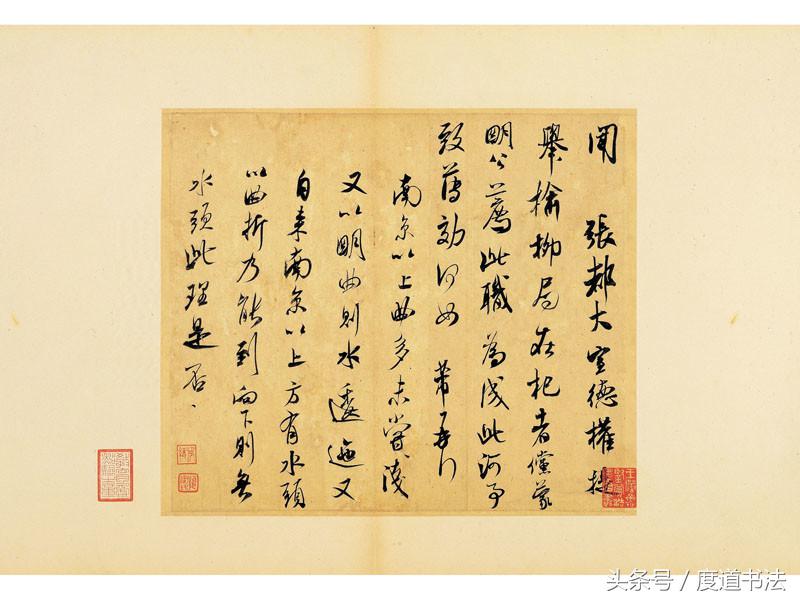 聞　張都大宣德權提
舉榆柳尾在杞者儻蒙
明公薦此職為成此河事
致薄効何如　芾再行
南京以上曲多未嘗淺
又以明曲則水逶迤又
自来南京以上方有水頭
以曲折乃能到向下則無
水頭此理是否
头条号 / 度道书法